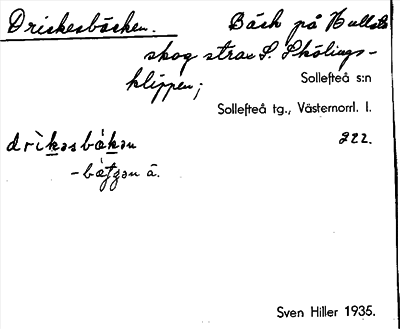 Driskesbäcken. Bäck på Hullsta
skog strax S. Skölings-
klippen;
Sollefteå s:n
Sollefteå tg., Västernorrl. l.
drìkəsbákən 222.
-bǽʈʂən ä.
Sven Hiller 1935.